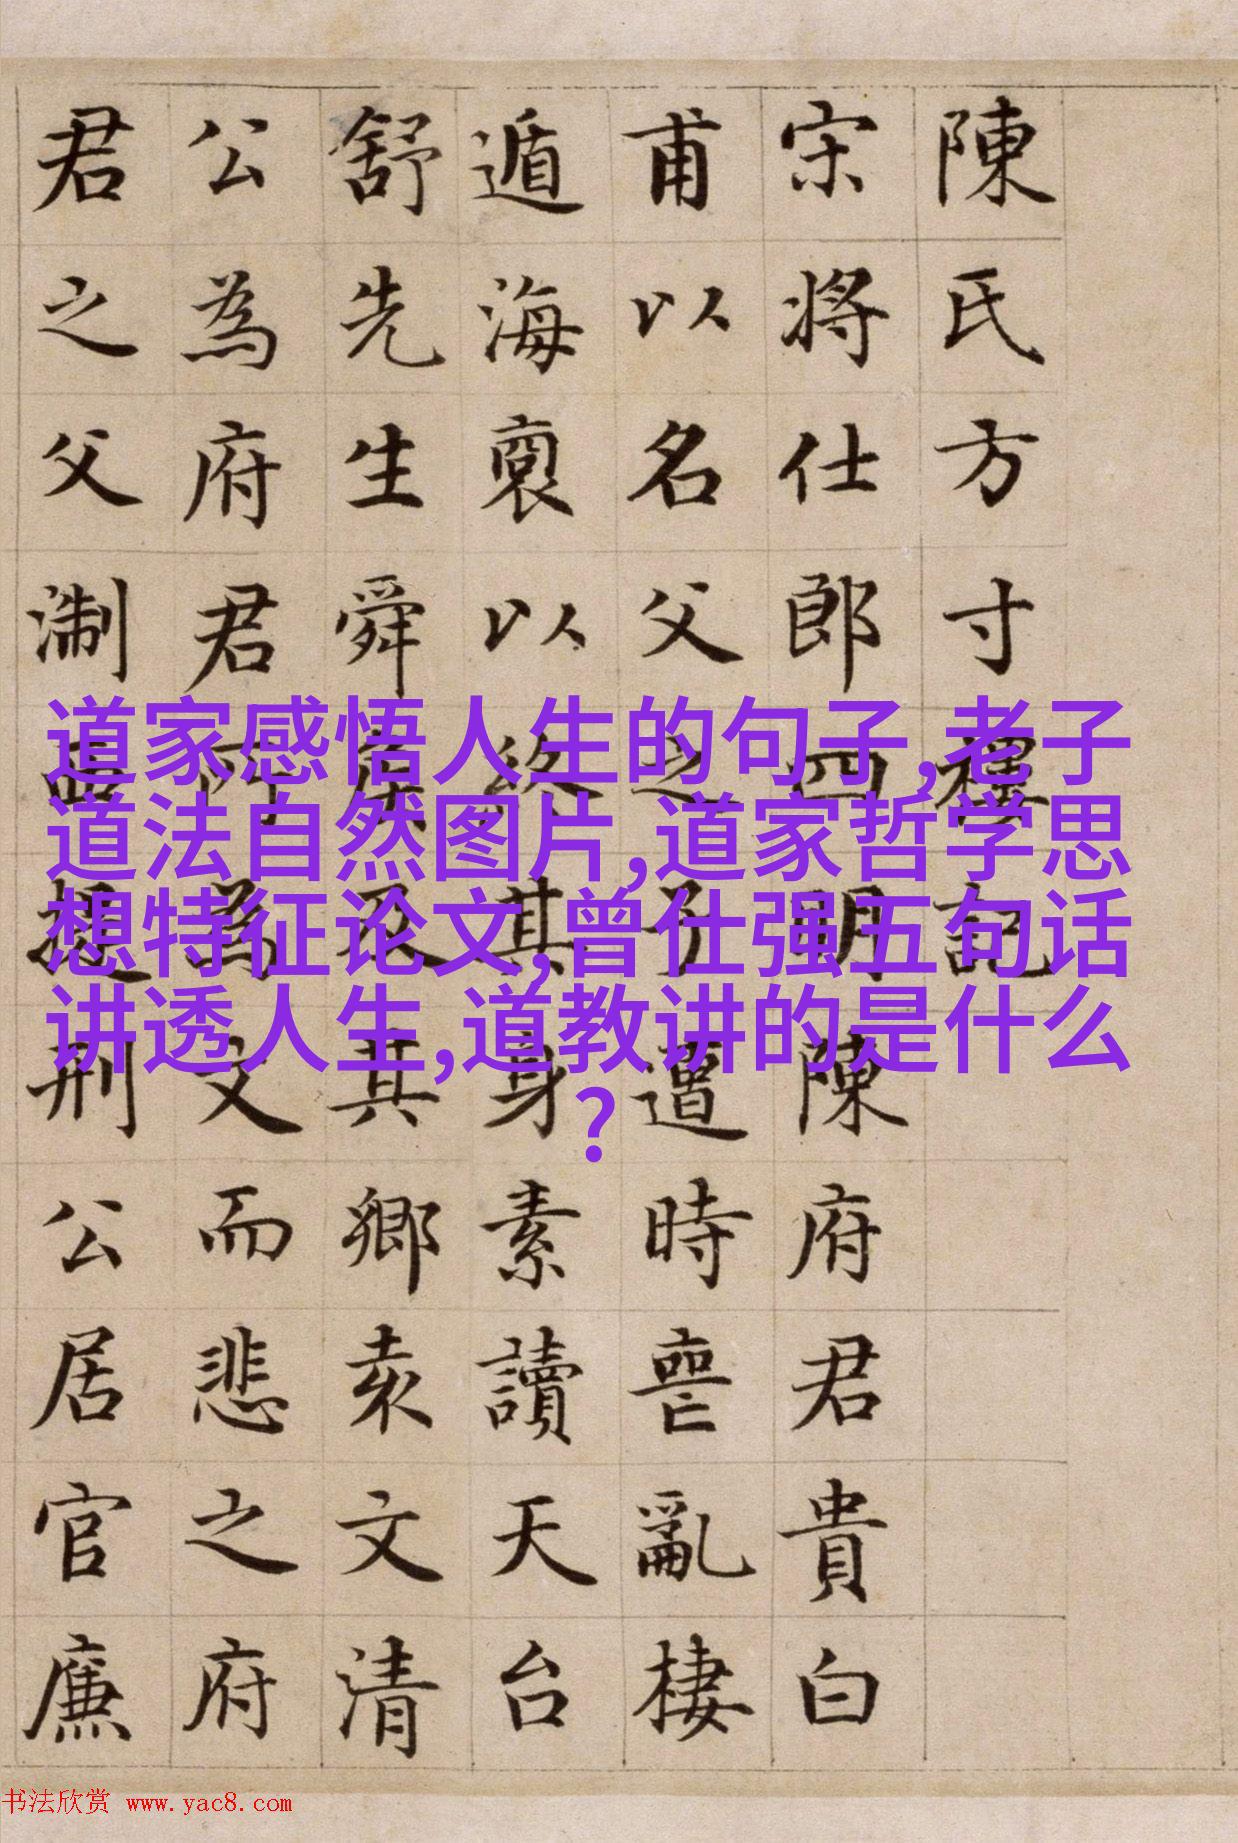 陳氏方寸記
宋將仕郎四明陳府君貴白
甫以名父之子遭時喪亂棲
遁海裔以終其身素讀天台
舒先生舜侯表其鄉袁文清
公為府君所為文而悲之府
君之父淛西提刑公居官廉
道家感悟人生的句子,老子
道法自然图片,道家哲学思
想特征论文,曾仕强五句话
讲透人生,道教讲的是什么
?
书法欣赏 www.yac8.com